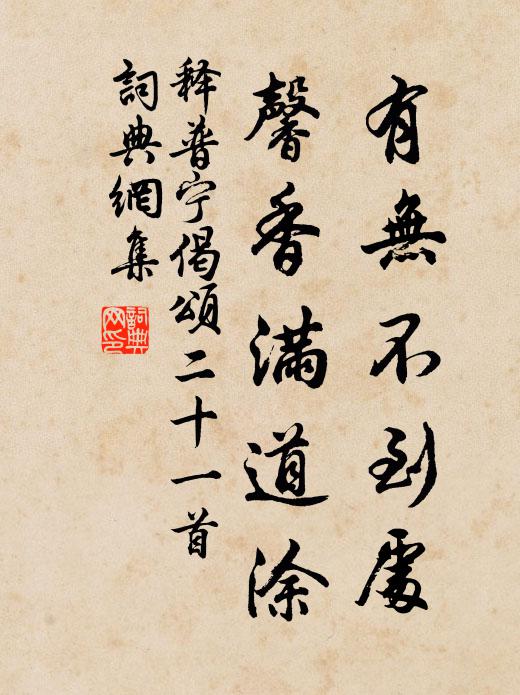 有無不到處
馨香滿道涂
释普宁偈頌二十一首
詞典網集
詞典网印